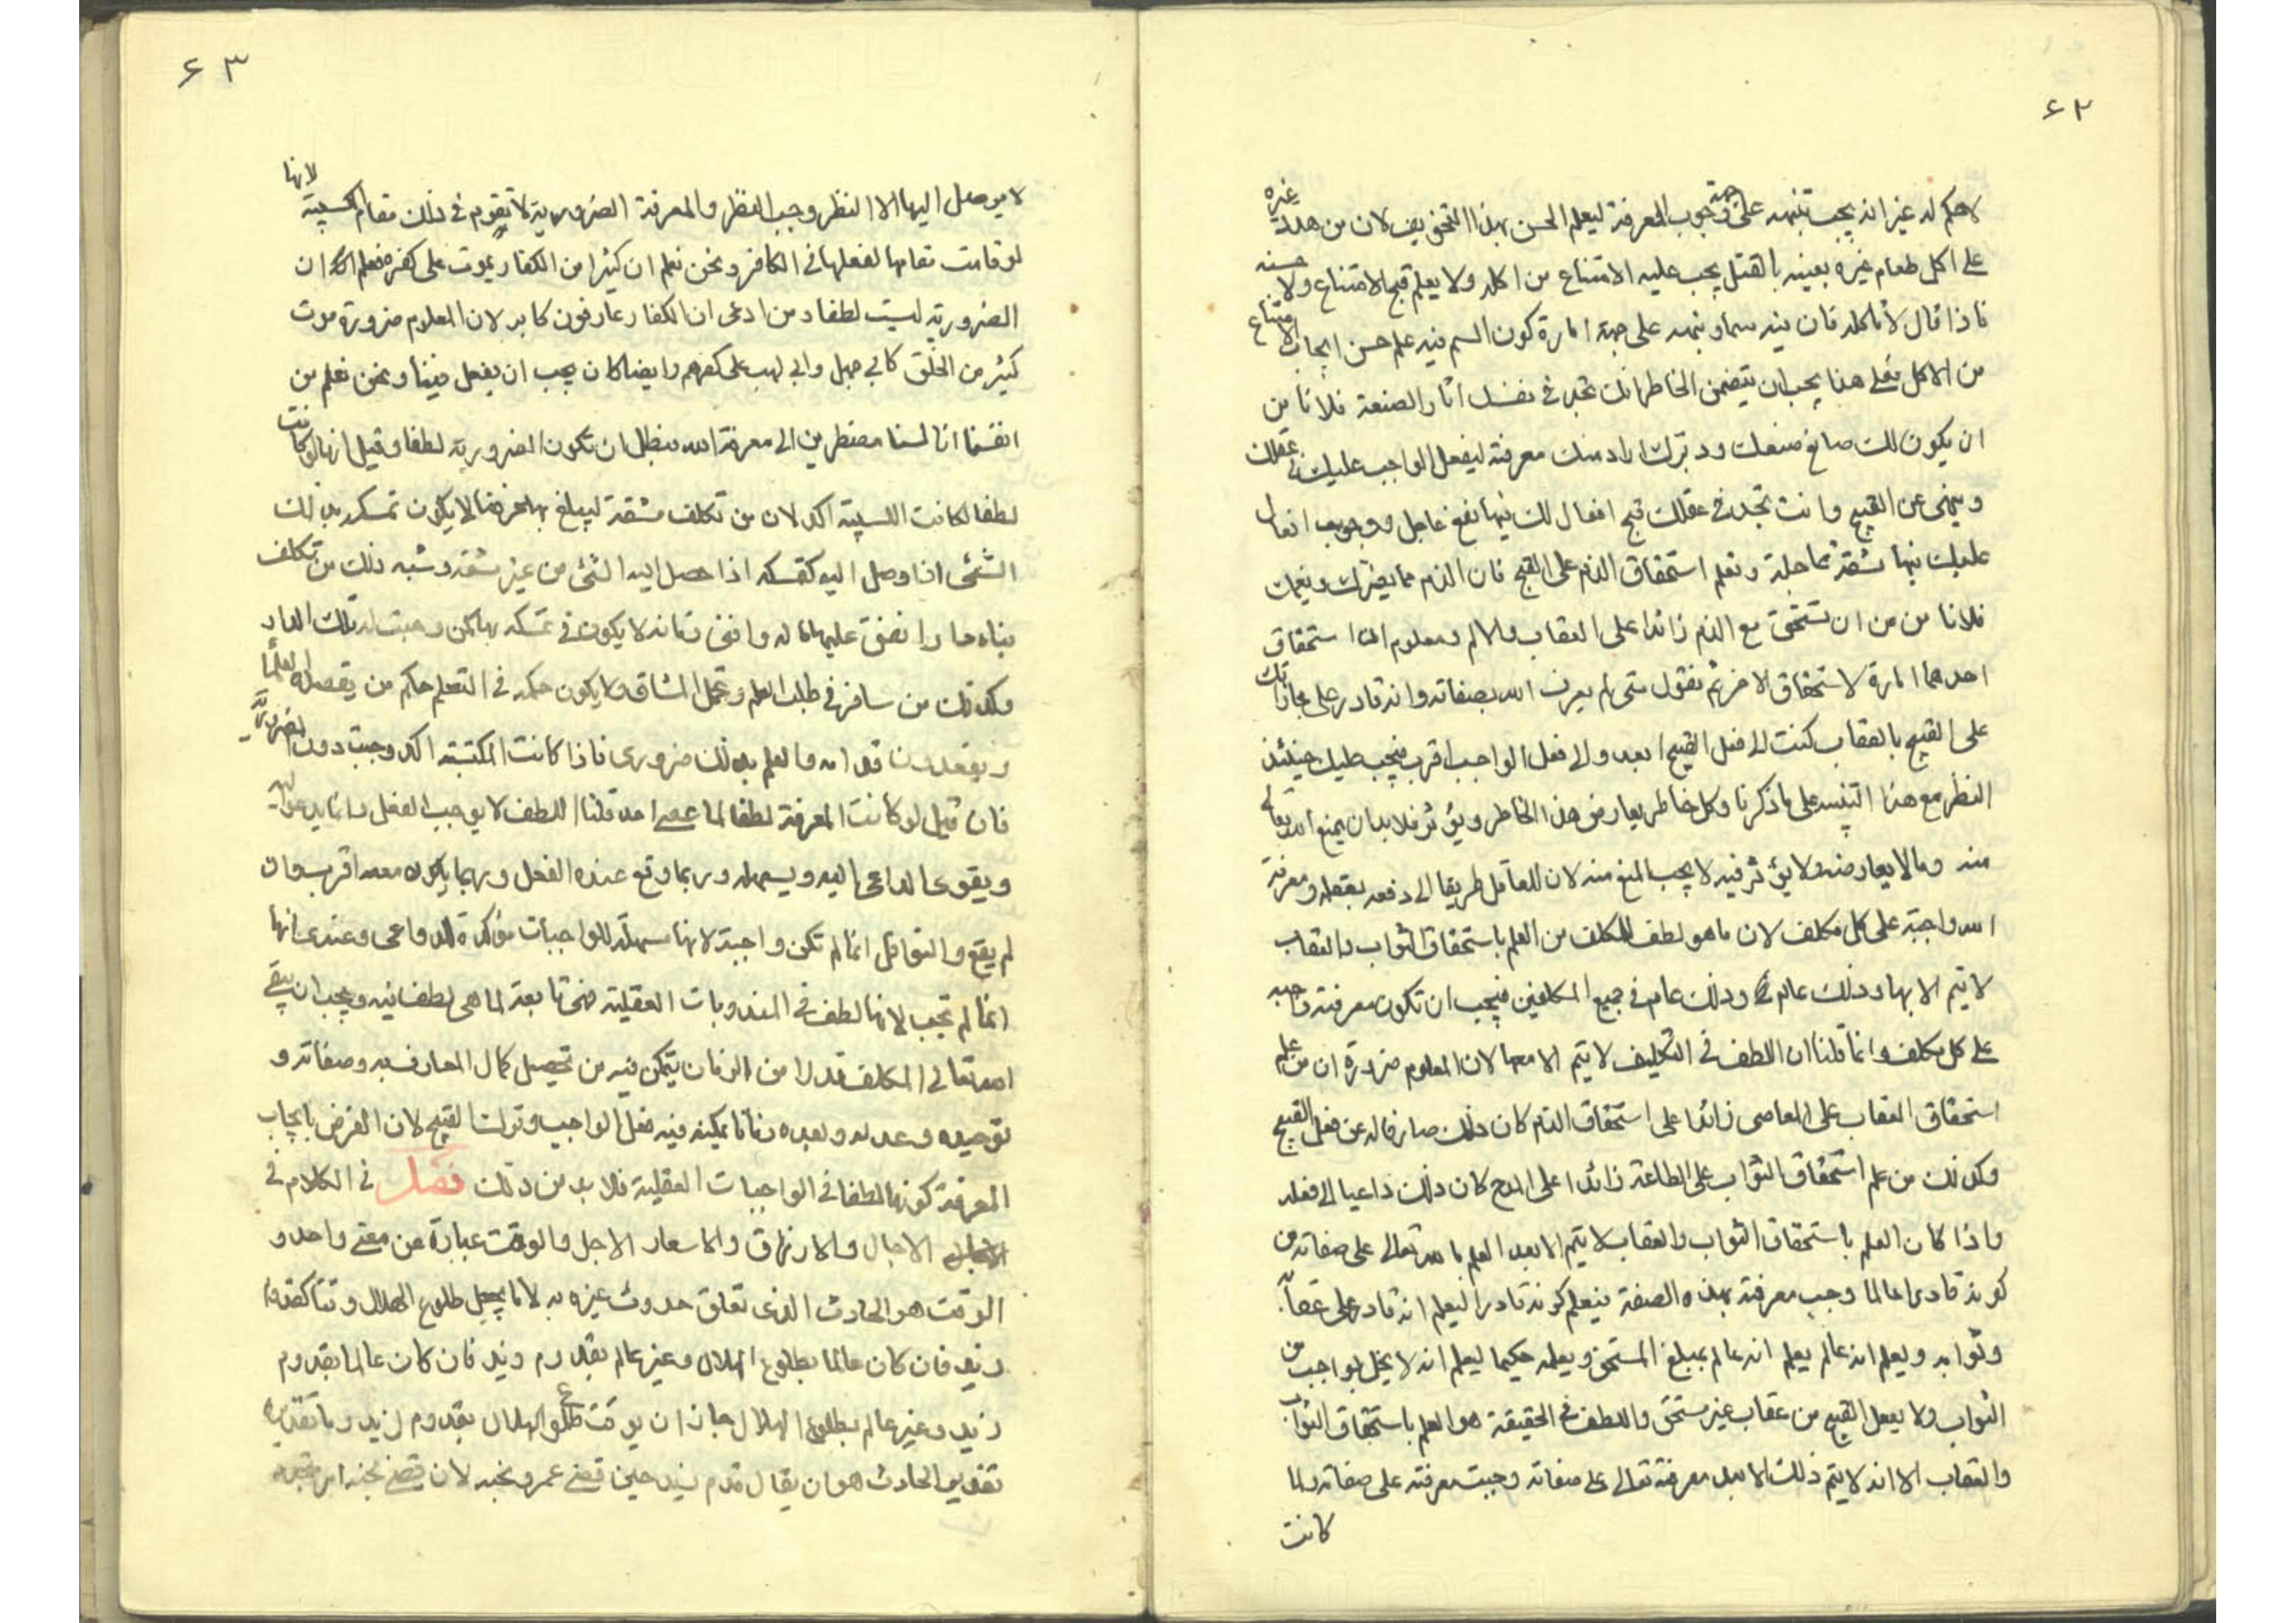 ٦٢
لا حكم له غير انه يجب تنبيهه على جهة وجوب المعرفة ليعلم الحسن بهذا التخويف لان من هدده غيره
على اكل طعام غيره بعينه بالقتل يجب عليه الامتناع من اكله ولا يعلم قبح الامتناع ولا حسنه
فاذا قال لا تاكله فان فيه سما ونبهه على جهة امارة كون السم فيه علم حسن ايجاب الامتناع
من الاكل فعلى هذا يجب ان يتضمن الخاطر انك تجد في نفسك اثار الصنعة فلا تامن
ان يكون لك صانع صنعك ودبرك اراد منك معرفته ليفعل الواجب عليك في عقلك
وينهى عن القبيح وانت تجد في عقلك قبح افعال لك فيها نفع عاجل ووجوب افعال
عليك فيها مشقة عاجلة وتعلم استحقاق الذم على القبح فان الذم مما يضرك ويغمك
فلا تامن من ان تستحق مع الذم زائدا على العقاب والالم ومعلوم ان استحقاق
احدهما امارة لاستحقاق الاخر ثم نقول متى لم يعرف الله بصفاته وانه قادر على مجازاتك
على القبيح بالعقاب كنت الى فعل القبيح ابعد والى فعل الواجب اقرب فيجب عليك حينئذ
النظر مع هذا التنبيه على ما ذكرنا وكل خاطر يعارض هذا الخاطر ويؤثر فلا بد ان يمنع الله تعالى
منه وما لا يعارضه ولا يؤثر فيه لا يجب المنع منه لان للعاقل طريقا الى دفعه بعقله ومعرفة
الله واجبة على كل مكلف لان ما هو لطف للمكلف من العلم باستحقاق الثواب والعقاب
لا يتم الا بها وذلك عام في وذلك عام في جميع المكلفين فيجب ان تكون معرفته واجبه
على كل مكلف وانما قلنا ان اللطف في التكليف لا يتم الا معها لان المعلوم ضرورة ان من علم
استحقاق العقاب على المعاصي زائدا على استحقاق الذم كان ذلك صارفا له عن فعل القبيح
وكذلك من علم استحقاق الثواب على الطاعة زائدا على المدح كان ذلك داعيا الى فعله
واذا كان العلم باستحقاق الثواب والعقاب لا يتم الا بعد العلم بالله تعالى على صفاته من
كونه قادرا عالما وجب معرفته بهذه الصفة فنعلم كونه قادرا ليعلم انه قادر على عقابه
وثوابه ويعلم انه عالم يعلم انه عالم بمبلغ المستحق ويعلمه حكيما ليعلم انه لا يخل بواجب من
الثواب ولا يفعل القبيح من عقاب غير مستحق واللطف في الحقيقة هو العلم باستحقاق الثواب
والعقاب الا انه لا يتم ذلك الا بعد معرفته تعالى على صفاته وجبت معرفته على صفاته ولما
كانت
٦٣
لا يوصل اليها الا النظر وجب النظر والمعرفة الضرورية لا تقوم في ذلك مقام الكسبية لانها
لو قامت مقامها لفعلها في الكافر ونحن نعلم ان كثيرا من الكفار يموت على كفره فعلم ان
الضرورية ليست لطفا ومن ادعى ان الكفار عارفون كابر لان المعلوم ضرورة موت
كثير من الخلق كابي جهل وابي لهب على كفرهم وايضا كان يجب ان يفعل فينا ونحن نعلم من
انفسنا انا لسنا مضطرين الى معرفة الله فبطل ان تكون الضرورية لطفا وقيل انها لو كانت
لطفا لكانت الكسبية اكد لان من تكلف مشقة ليبلغ بها غرضا لا يكون تمسكه بذلك
الشئ اذا وصل اليه كتمسكه اذا حصل اليه الشئ من غير مشقة وشبه ذلك من تكلف
بناء دار انفق عليها ماله وافنى زمانه لا يكون في تمسكه بها كمن وهبت له تلك الدار
وكذلك من سافر في طلب العلم وتحمل المشاق لا يكون حكمه في التعلم حكم من يقصده العلماء
ويقعدون قدامه والعلم بذلك ضروري فاذا كانت المكتسبة اكد وجبت دون الضرورية
فان قيل لو كانت المعرفة لطفا لما عصى احد قلنا اللطف لا يوجب الفعل وانما يدعو اليه
ويقوى الداعي اليه ويسهله وربما وقع عنده الفعل وربما يكون معه اقرب وان
لم يقع والنوافل انما لم تكن واجبة لانها مسهلة للواجبات مؤكدة للدواعي وعندي انها
انما لم تجب لانها لطف في المندوبات العقلية فهي تابعة لما هي لطف فيه ويجب ان يبقى
الله تعالى المكلف قدرا من الزمان يتمكن فيه من تحصيل كمال المعارف به وصفاته و
توحيده وعدله وبعده زمانا يمكنه فيه فعل الواجب وترك القبيح لان الغرض بايجاب
المعرفة كونها لطفا في الواجبات العقلية فلا بد من ذلك فصل في الكلام في
الاجال والارزاق والاسعار الاجل والوقت عبارة عن معنى واحد و
الوقت هو الحادث الذي تعلق حدوث غيره به لانا نجعل طلوع الهلال وقتا لقدوم
زيد فان كان عالما بطلوع الهلال وغير عالم بقدوم زيد فان كان عالما بقدوم
زيد وغير عالم بطلوع الهلال جاز ان يوقت طلوع الهلال بقدوم زيد وما تقديره
تقدير الحادث هو ان يقال قدم زيد حين قضى عمرو نحبه لان قضى نحبه امر متجدد